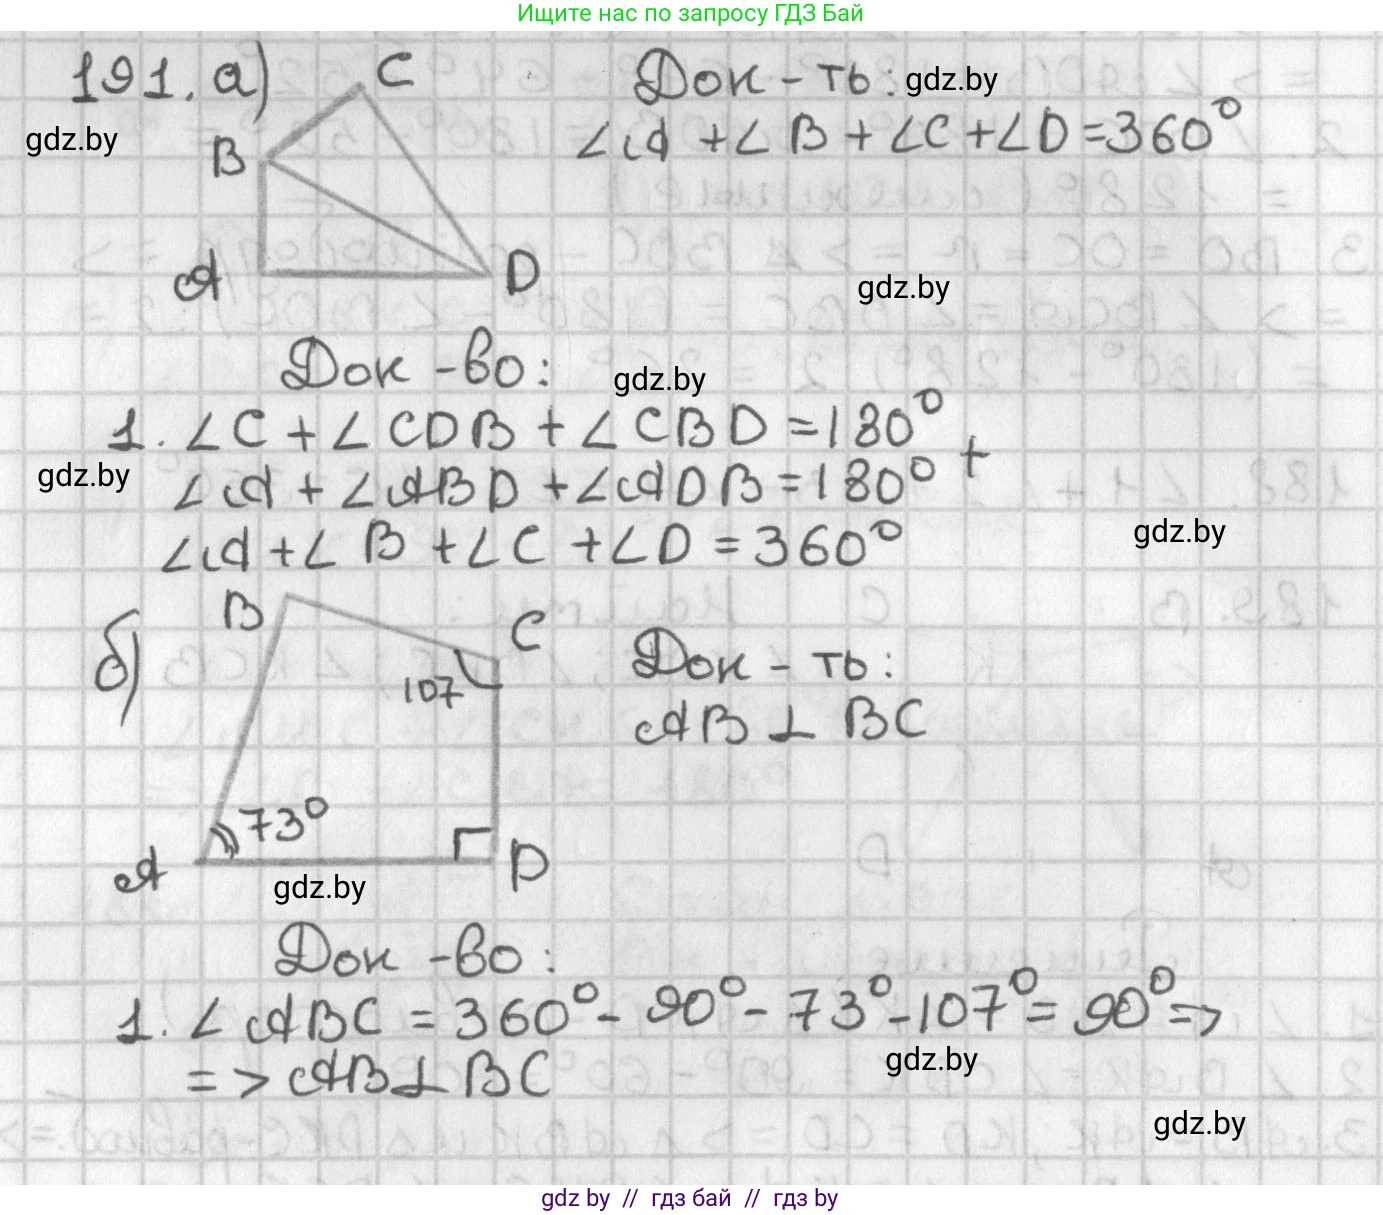 Ищите нас по запросу ГДЗ Бай
191. а)
C
B
A
D
Док-ть: gdz.by
∠A + ∠B + ∠C + ∠D = 360°
gdz.by
gdz.by
Док-во: gdz.by
1. ∠C + ∠CDB + ∠CBD = 180°
+
gdz.by
∠A + ∠ABD + ∠ADB = 180°
∠A + ∠B + ∠C + ∠D = 360°
gdz.by
б)
B
C
107
73°
A
D
gdz.by
Док-ть:
AB ⊥ BC
Док-во:
1. ∠ABC = 360° - 90° - 73° - 107° = 90° =>
=> AB ⊥ BC
gdz.by
gdz.by
gdz by // гдз бай // гдз by